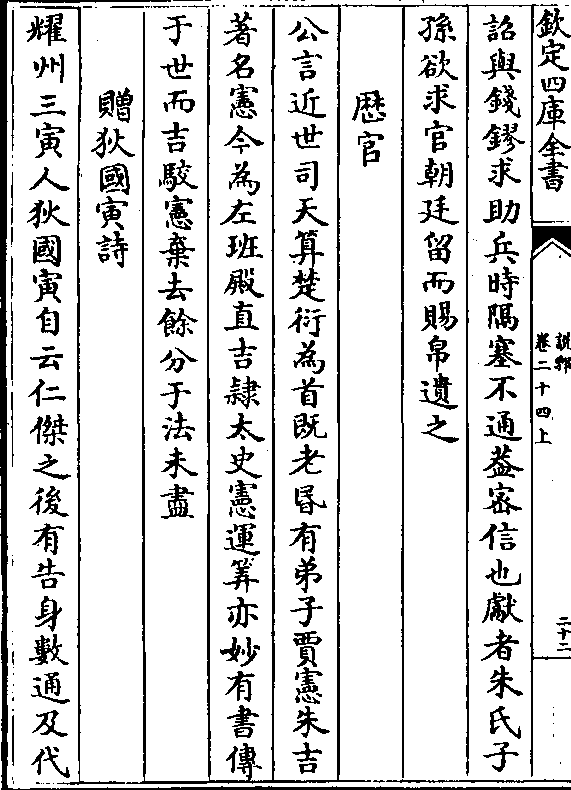 欽定四庫全書
說郛
卷二十四上
二十二
詔與錢鏐求助兵時隔塞不通葢宻信也獻者朱氏子
孫欲求官朝廷留而賜帛遺之
厯官
公言近世司天算楚衍為首既老昬有弟子賈憲朱吉
著名憲今為左班殿直吉隷太史憲運筭亦妙有書傳
于世而吉駮憲棄去餘分于法未盡
贈狄國寅詩
耀州三寅人狄國寅自云仁傑之後有告身數通及代